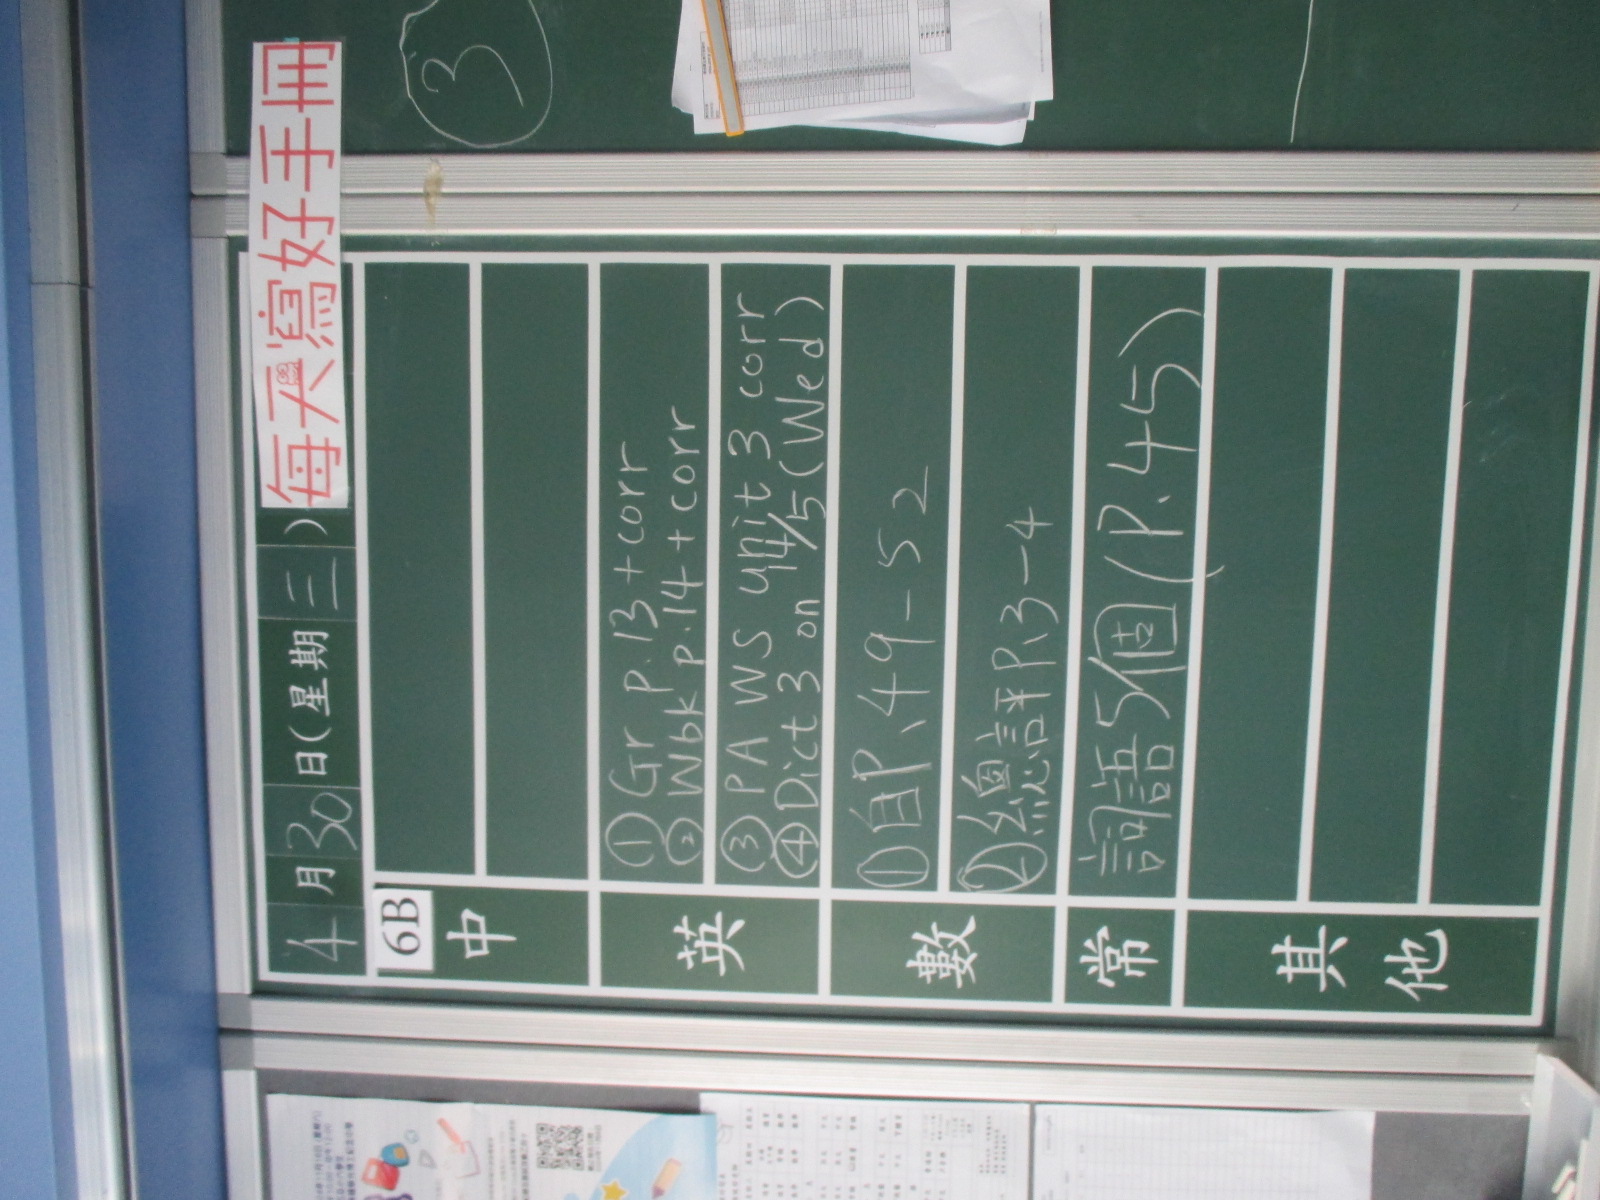 每天寫好手冊
4月30日(星期三)
6B
中
英
① Gr P.13 + corr
② Wbk p.14 + corr
③ PA WS unit 3 corr
④ Dict 3 on 14/5 (Wed)
數
① 自P.49-52
② 總評P.3-4
常
詞語5個(P.45)
其他
3